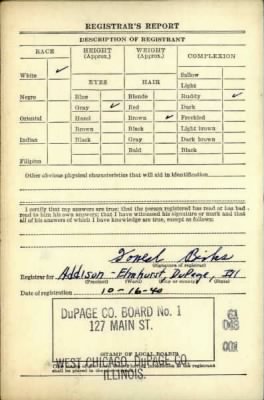 REGISTRAR'S REPORT
DESCRIPTION OF REGISTRANT
RACE HEIGHT (Approx.) WEIGHT (Approx.) COMPLEXION
White ✓ Sallow
EYES HAIR Light
Negro Blue Blonde Ruddy ✓
Gray ✓ Red Dark
Oriental Hazel Brown ✓ Freckled
Brown Black Light brown
Indian Black Gray Dark brown
Bald Black
Filipino
Other obvious physical characteristics that will aid in identification
I certify that my answers are true; that the person registered has read or has had
read to him his own answers; that I have witnessed his signature or mark and that
all of his answers of which I have knowledge are true, except as follows:
(Signature of registrar)
Registrar for Addison - Elmhurst, DuPage, Ill
(Precinct) (Ward) (City or county) (State)
Date of registration 10-16-40
DuPAGE CO. BOARD No. 1
127 MAIN ST.
WEST CHICAGO, DuPAGE CO.
(STAMP OF LOCAL BOARD)
ILLINOIS.